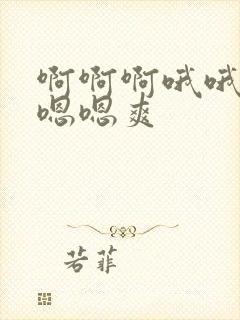 啊啊啊哦哦
嗯嗯爽
若菲